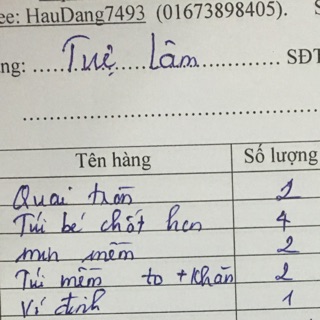 ee: HauDang7493 (01673898405). S
ng: ..... Tuệ Lâm ............... SĐT
Tên hàng Số lượng
Quai tròn 2
Túi bé chốt hcn 4
mềm 2
Túi mềm to + khăn 2
Ví đinh 1